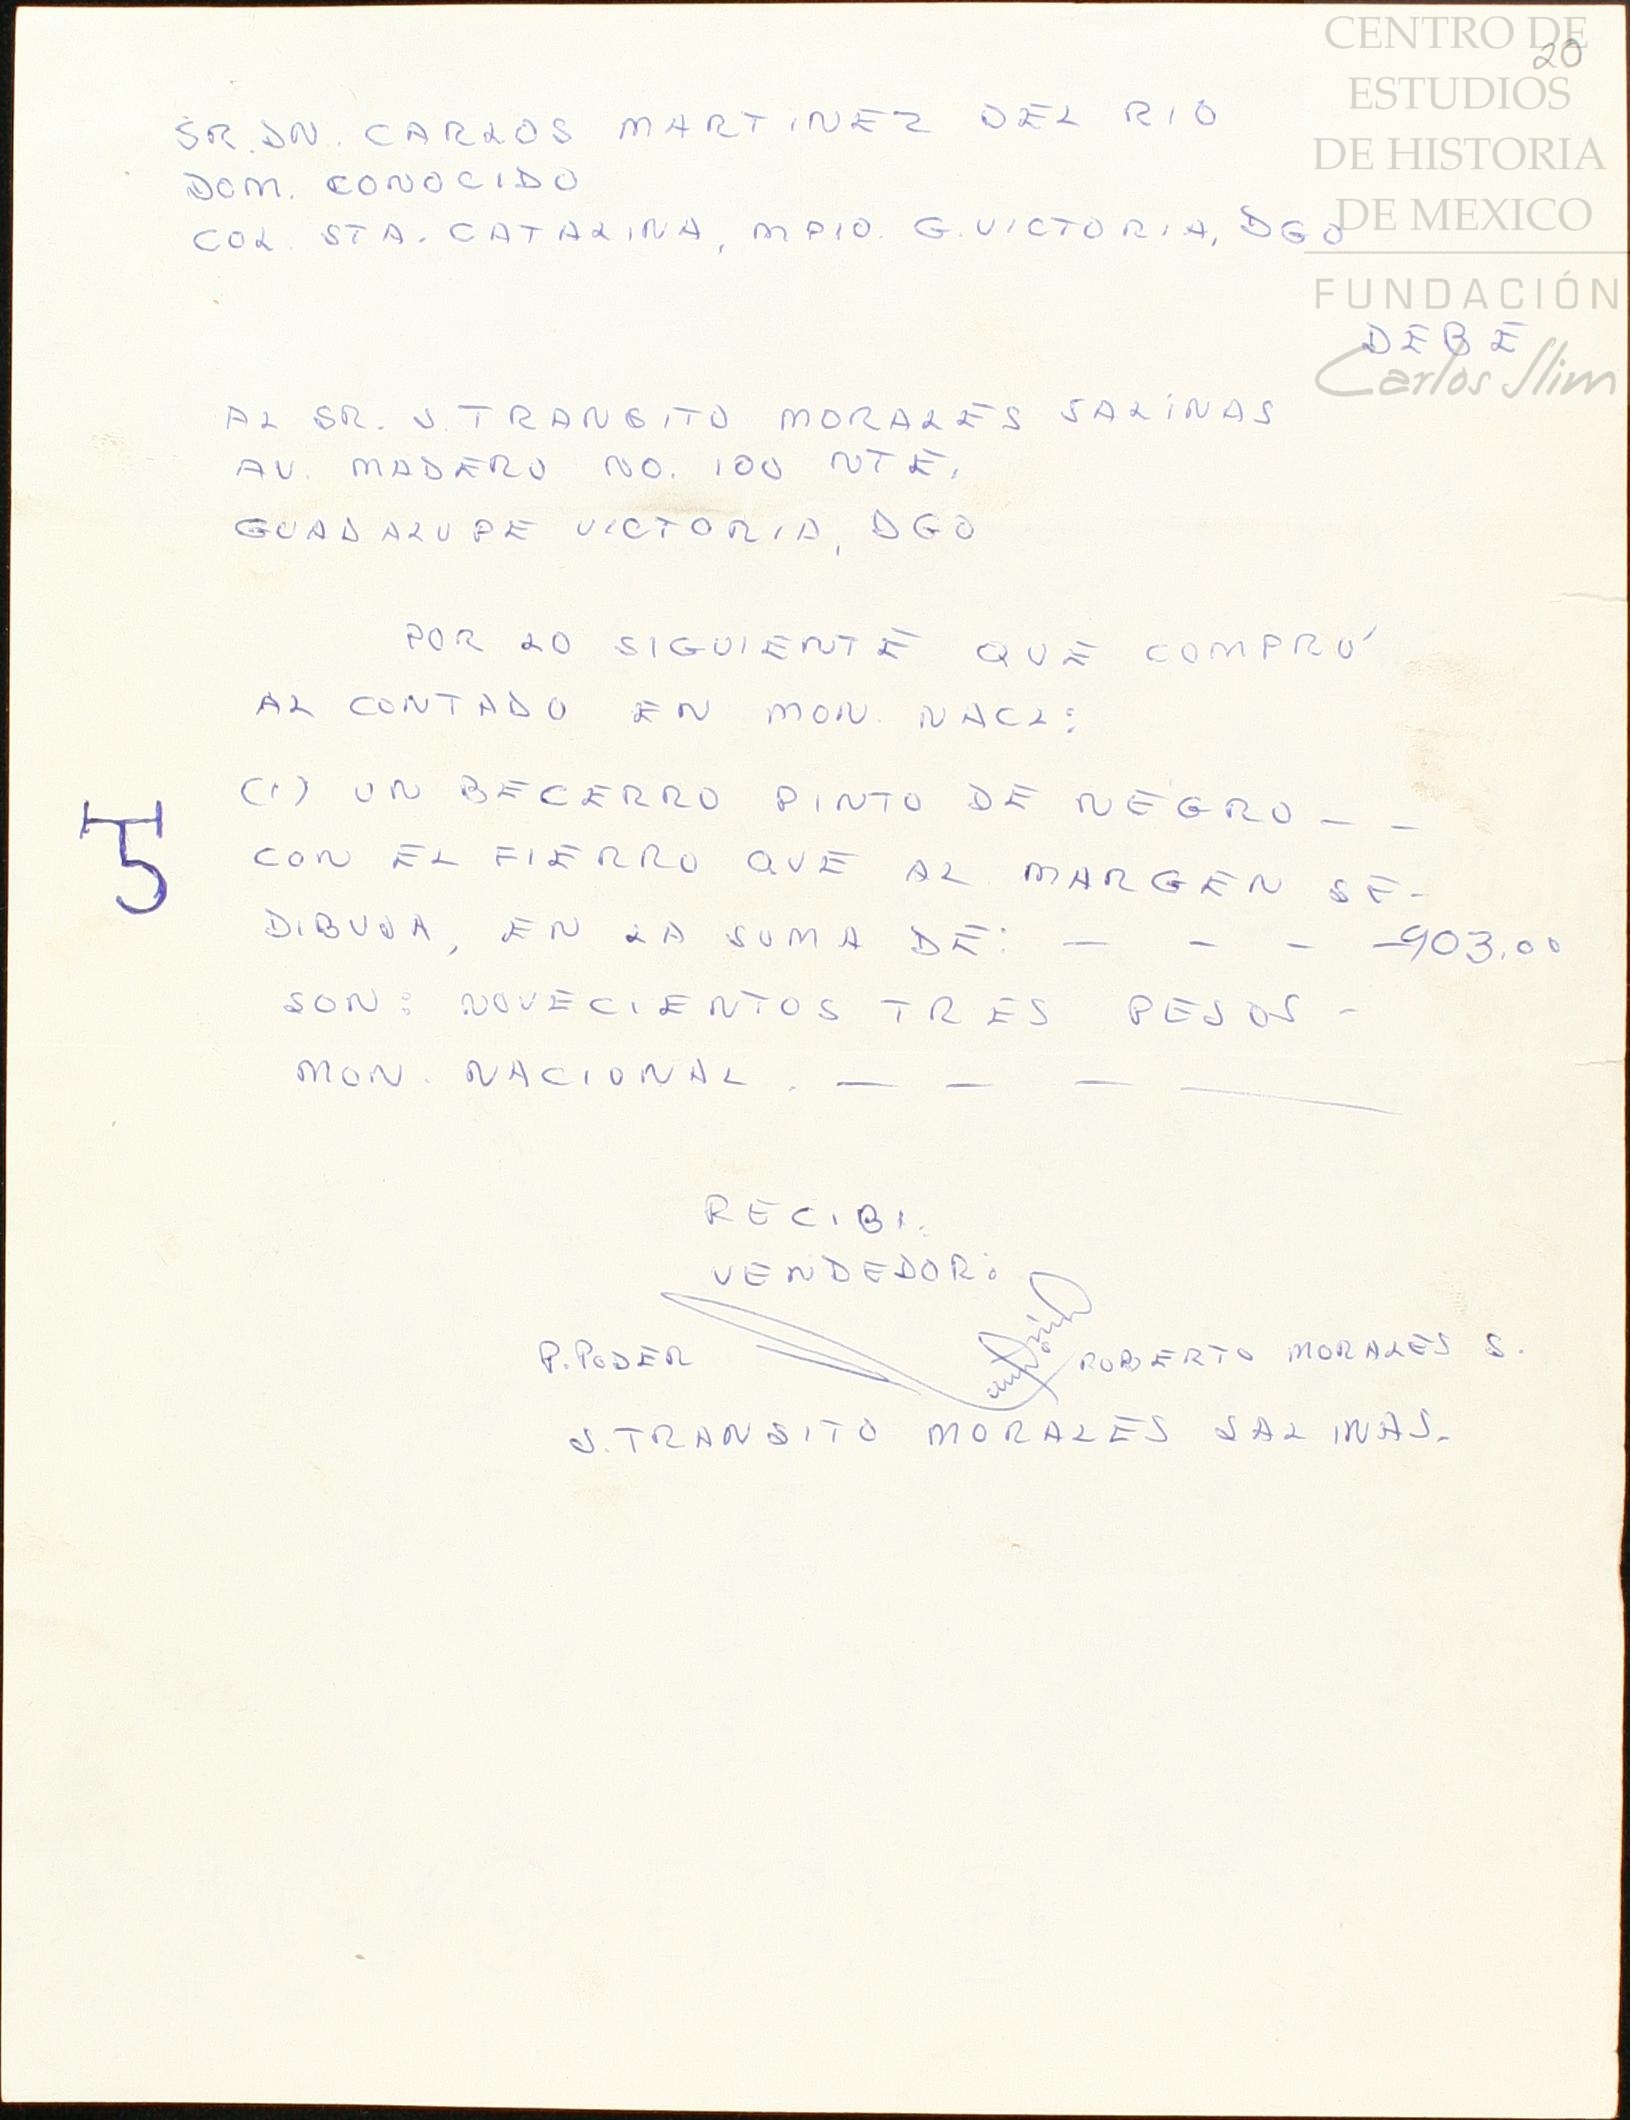 CENTRO DE
20
ESTUDIOS
DE HISTORIA
DE MEXICO
FUNDACIÓN
Carlos Slim
SR. DN. CARLOS MARTINEZ DEL RIO
DOM. CONOCIDO
COL. STA. CATALINA, MPIO. G. VICTORIA, DGO
DEBE
AL SR. J. TRANSITO MORALES SALINAS
AV. MADERO NO. 100 NTE.
GUADALUPE VICTORIA, DGO
POR LO SIGUIENTE QUE COMPRÓ
AL CONTADO EN MON. NACL:
(1) UN BECERRO PINTO DE NEGRO — —
CON EL FIERRO QUE AL MARGEN SE-
DIBUJA, EN LA SUMA DE: — - - — 903.00
SON: NOVECIENTOS TRES PESOS -
MON. NACIONAL. — — — —
RECIBI.
VENDEDOR:
P. PODER ROBERTO MORALES S.
J. TRANSITO MORALES SALINAS.